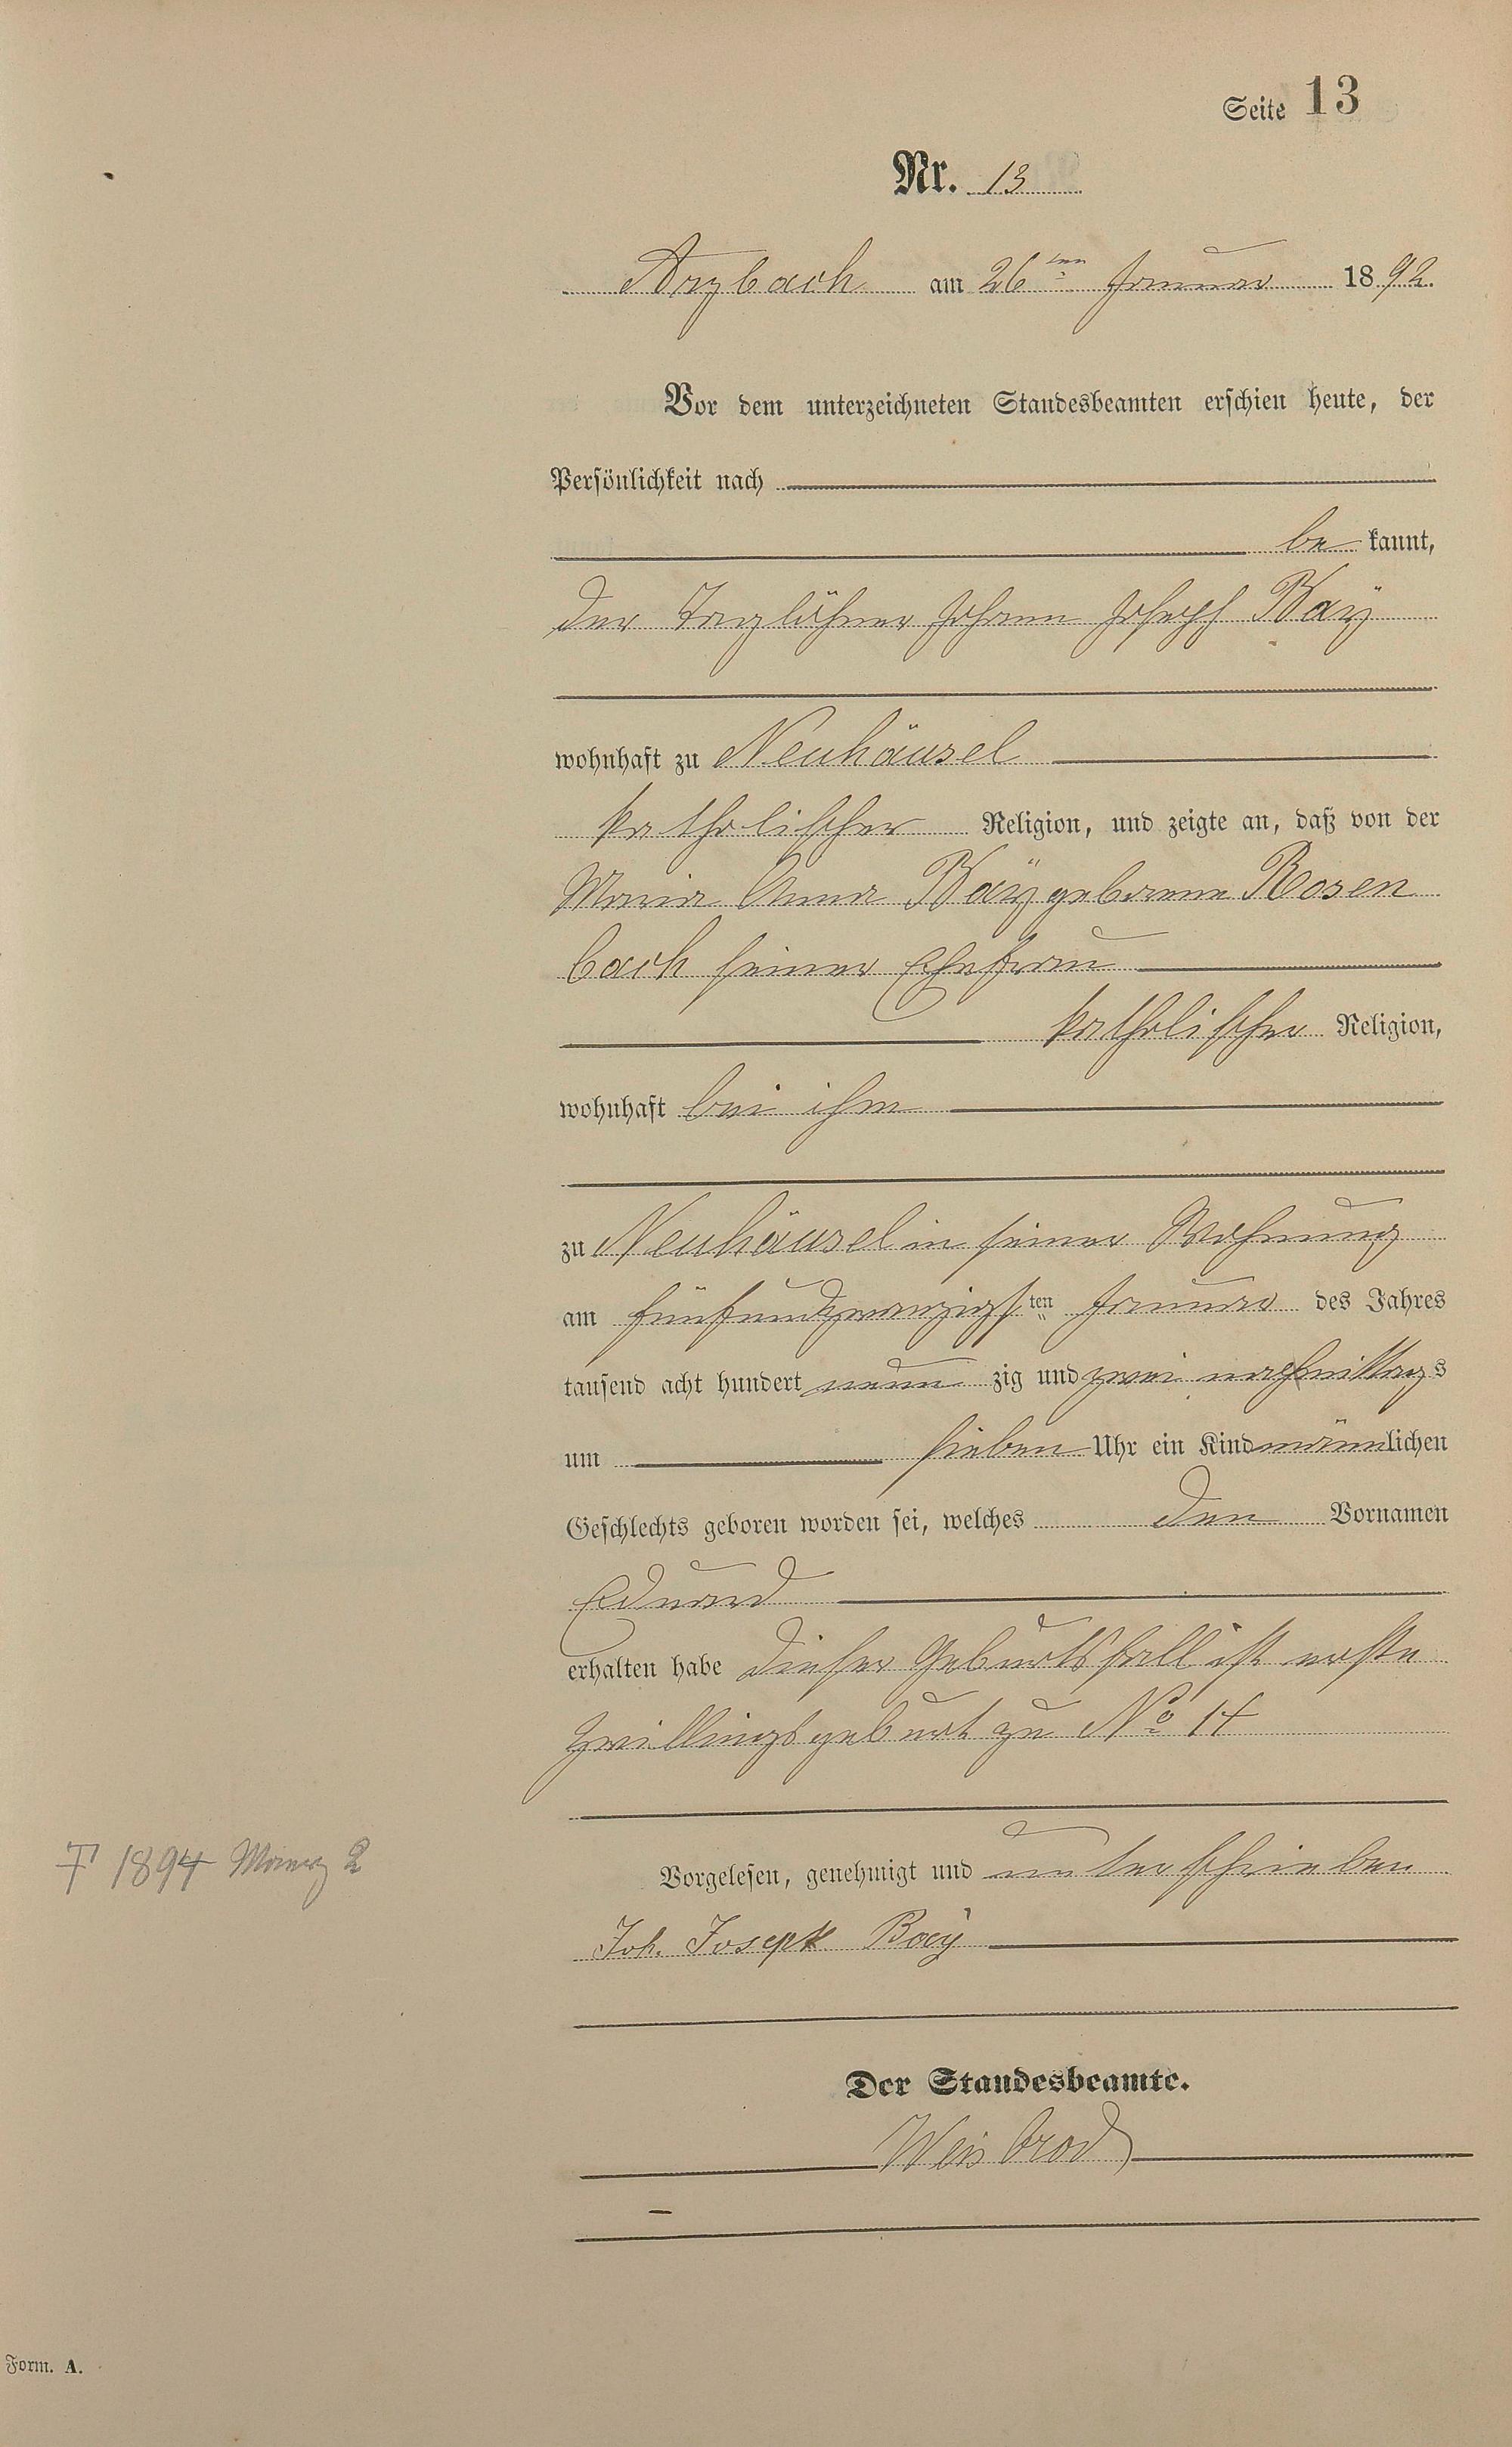 Seite 13
Nr. 13
Arzbach am 26ten Januar 1892.
Vor dem unterzeichneten Standesbeamten erschien heute, der
Persönlichkeit nach
be kannt,
der Taglöhner Johann Joseph Baÿ
wohnhaft zu Neuhäusel
katholischer Religion, und zeigte an, daß von der
Maria Anna Baÿ geborene Rosen
bach seiner Ehefrau
katholischer Religion,
wohnhaft bei ihm
zu Neuhäusel in seiner Wohnung
am fünfundzwanzigsten Januar des Jahres
tausend acht hundert neun zig und zwei nachmittags
um sieben Uhr ein Kind männlichen
Geschlechts geboren worden sei, welches den Vornamen
Eduard
erhalten habe dieser Geburtsfall ist erste
Zwillingsgeburt zu No 14
† 1894 Maerz 2
Vorgelesen, genehmigt und unterschrieben
Joh. Joseph Baÿ
Der Standesbeamte.
Weisbrod
Form. A.